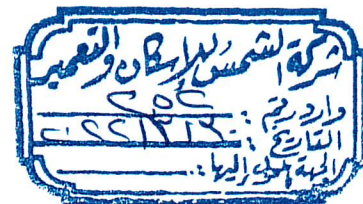 شركة الشمس للإسكان والتعمير
وارد رقم : ٢٥٢
التاريخ : ٢٠٢٢/٣/١٣
الجهة المحول إليها :